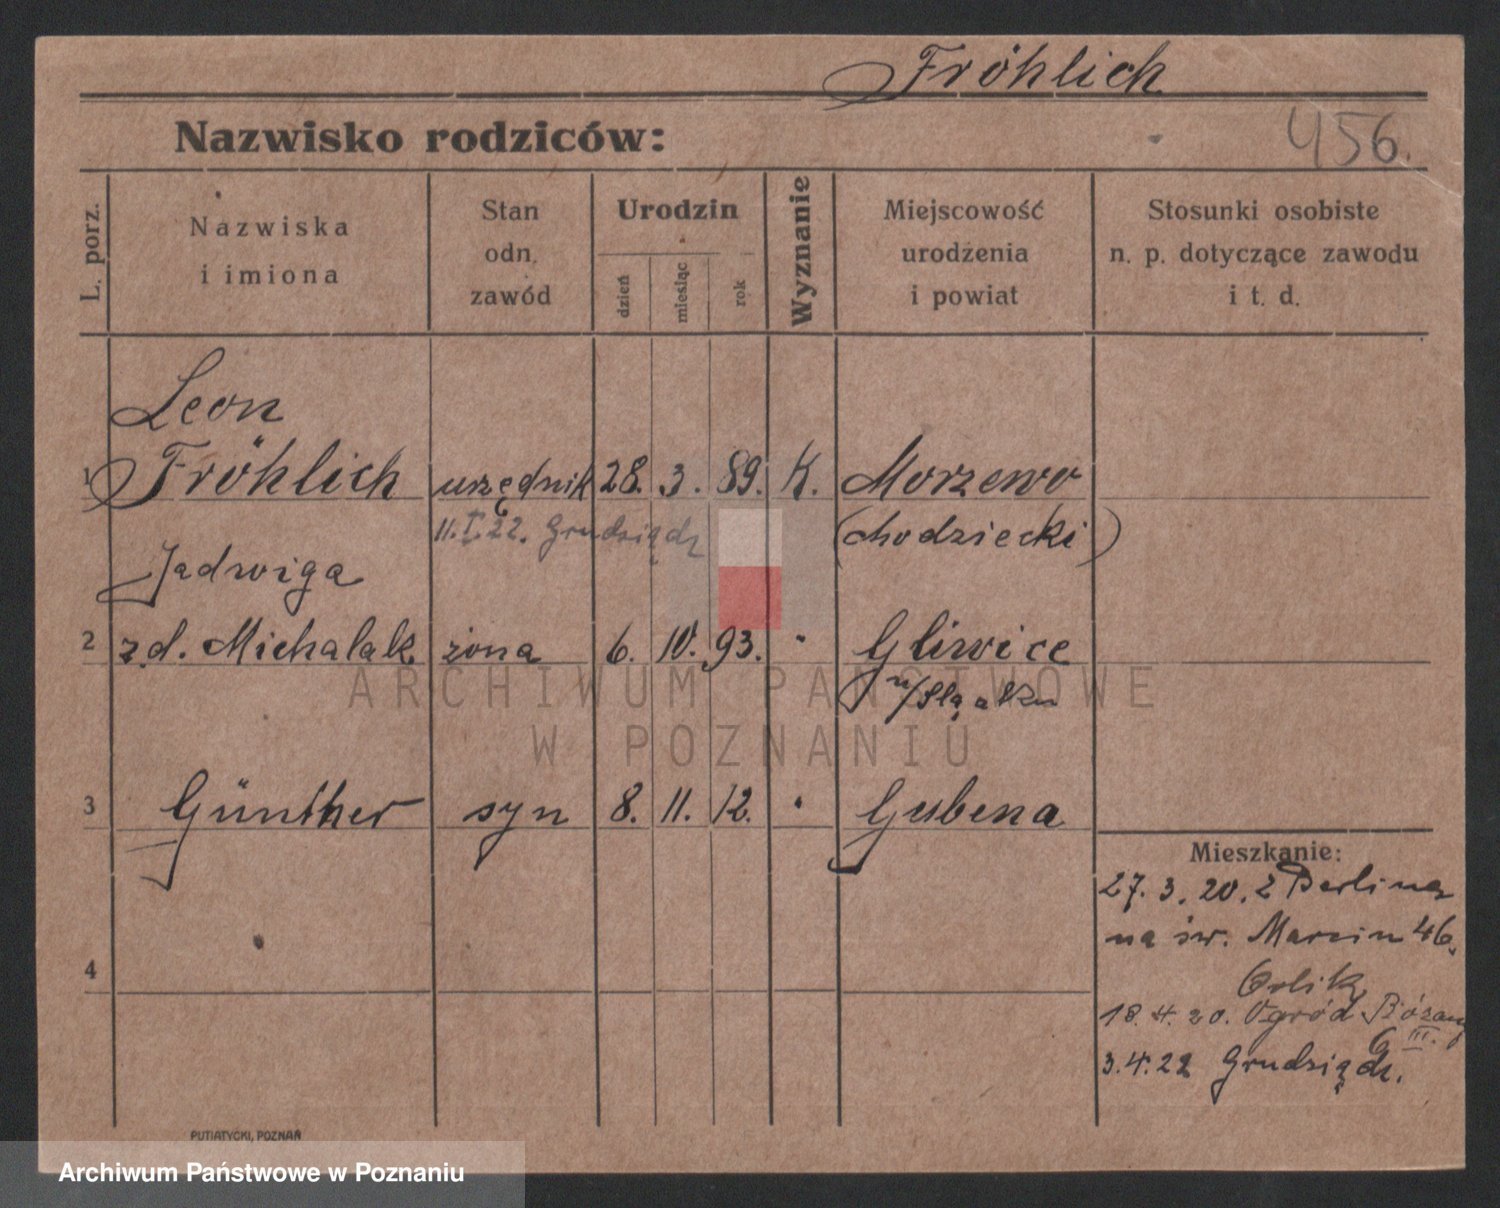 Fröhlich
Nazwisko rodziców:
456.
L. porz.
Nazwiska
i imiona
Stan
odn.
zawód
Urodzin
dzień
miesiąc
rok
Wyznanie
Miejscowość
urodzenia
i powiat
Stosunki osobiste
n. p. dotyczące zawodu
i t. d.
Leon
1 Fröhlich urzędnik 28. 3. 89. K. Morzewo
11.I.22. Grudziądz (chodzieski)
Jadwiga
2 z.d. Michalak żona 6. 10. 93. " Gliwice
n/Śląsku
3 Günther syn 8. 11. 12. " Gubena
Mieszkanie:
27. 3. 20. z Berlina
na św. Marcin 46.
18. 4. 20. Ogród
III.
3.4.22 Grudziądz.
4
PUTIATYCKI, POZNAŃ
ARCHIWUM PAŃSTWOWE
W POZNANIU
Archiwum Państwowe w Poznaniu